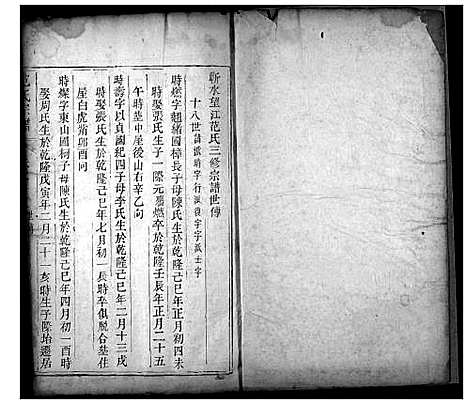 蘄水望江范氏三修宗譜世傳
十八世諱
時燦字趙緒國樟長子母陳氏生於乾隆己巳年正月初四未
時娶張氏生子一際元壽燃卒於乾隆壬辰年正月二十五
午時塟中屋後山右辛乙向
時壽字以貞國紀四子母李氏生於乾隆己巳年二月十三戌
時娶張氏生於乾隆己巳年七月初一長時卒俱脫合塟在
屋白虎觜卯酉向
時燦字東山國柯子母陳氏生於乾隆己巳年四月初一酉時
娶周氏生於乾隆戊寅年二月二十一亥時生子際坮遷居